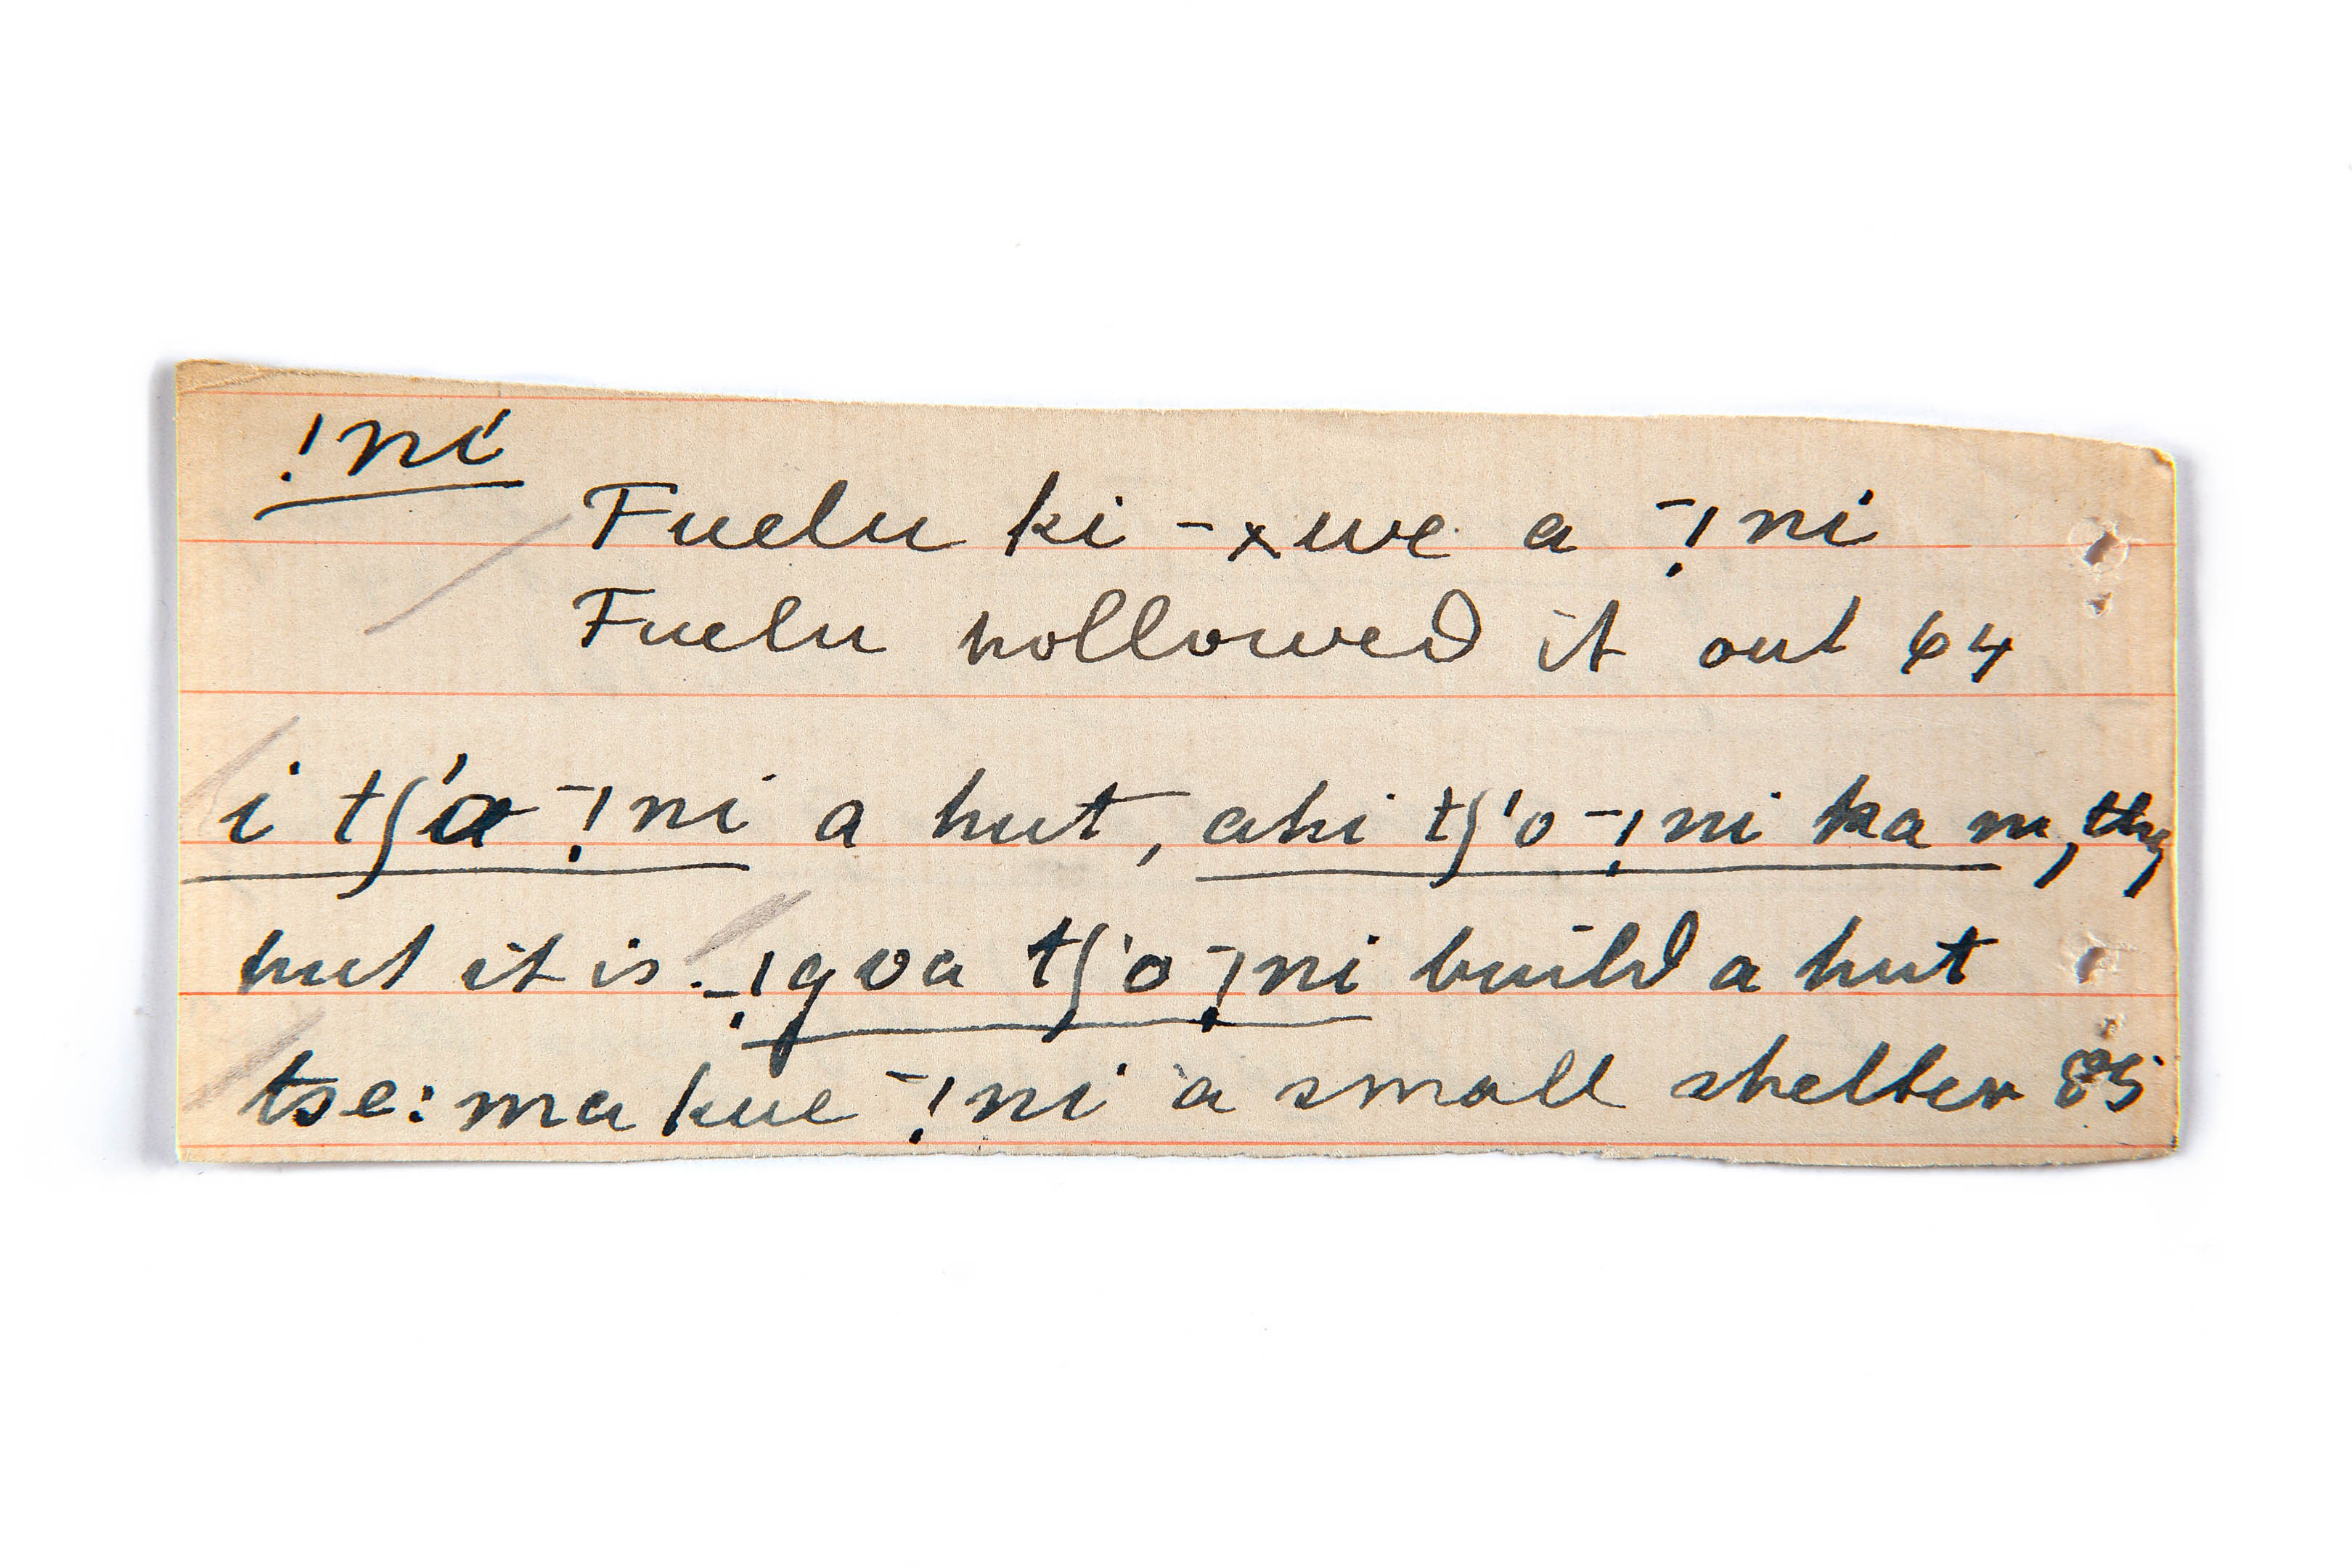 !ni
Fuelu ki -xwe a -!ni
Fuelu hollowed it out 64
i tʃ'a -!ni a hut, ahi tʃ'o -!ni ka m, thy
hut it is. -!goa tʃ'o -!ni build a hut
tse: ma kue -!ni a small shelter 85